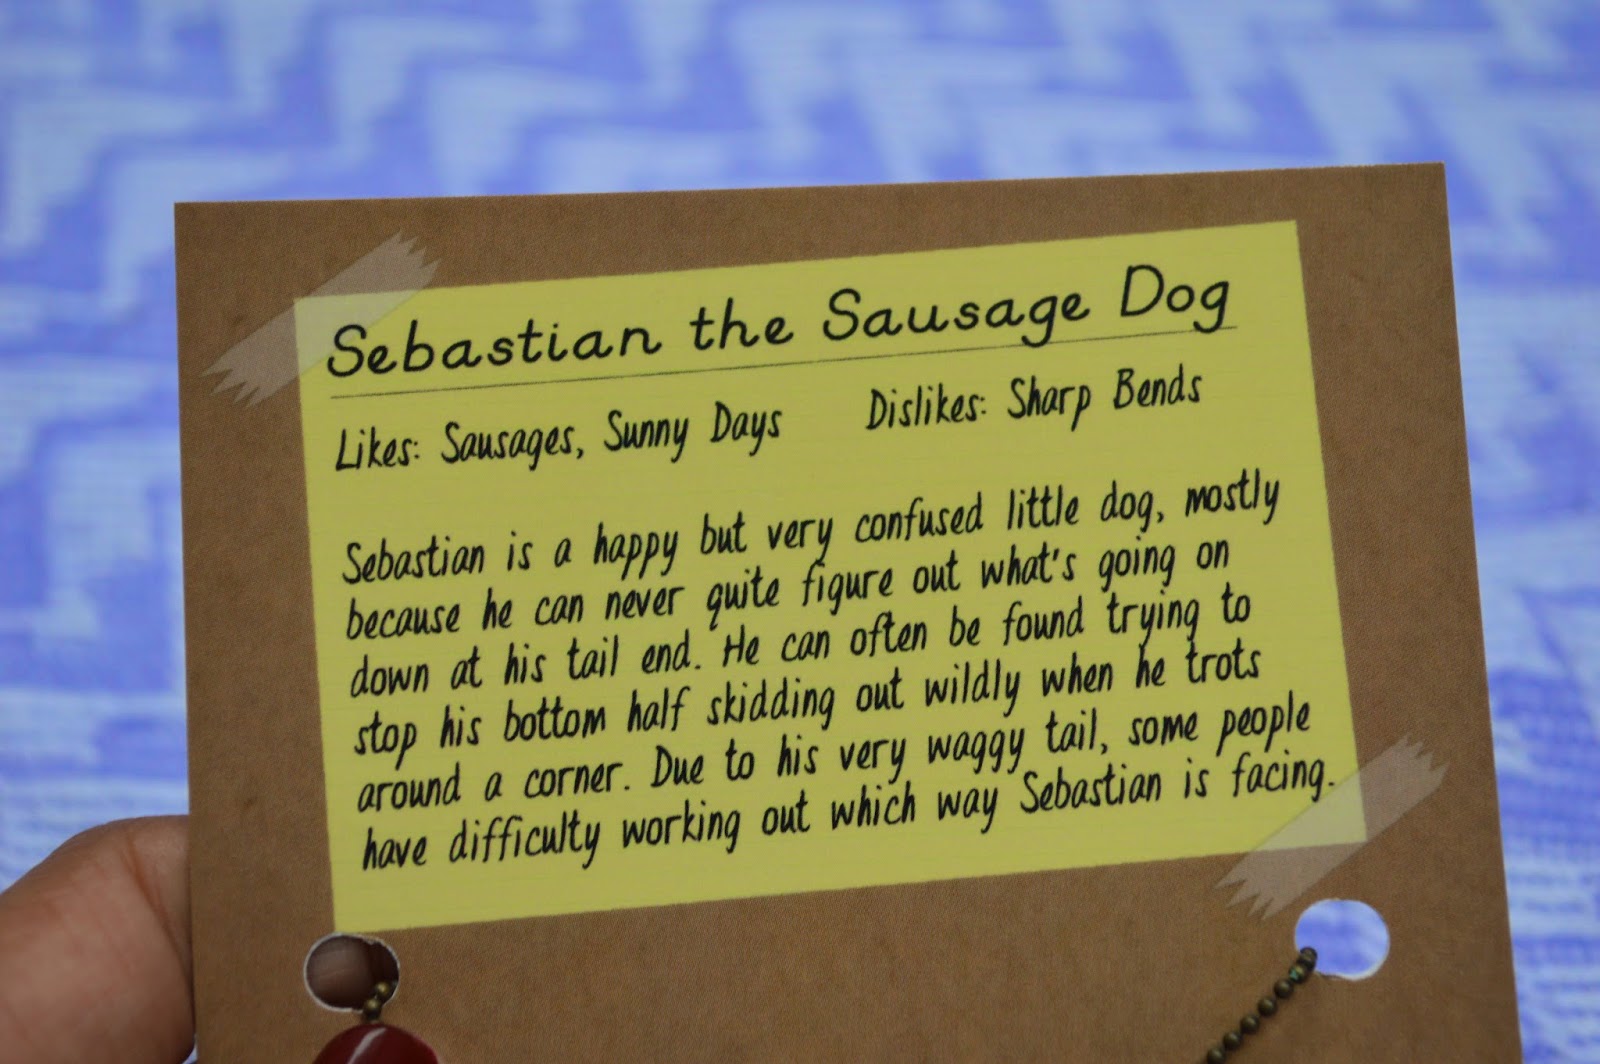 Sebastian the Sausage Dog
Likes: Sausages, Sunny Days Dislikes: Sharp Bends
Sebastian is a happy but very confused little dog, mostly
because he can never quite figure out what's going on
down at his tail end. He can often be found trying to
stop his bottom half skidding out wildly when he trots
around a corner. Due to his very waggy tail, some people
have difficulty working out which way Sebastian is facing.